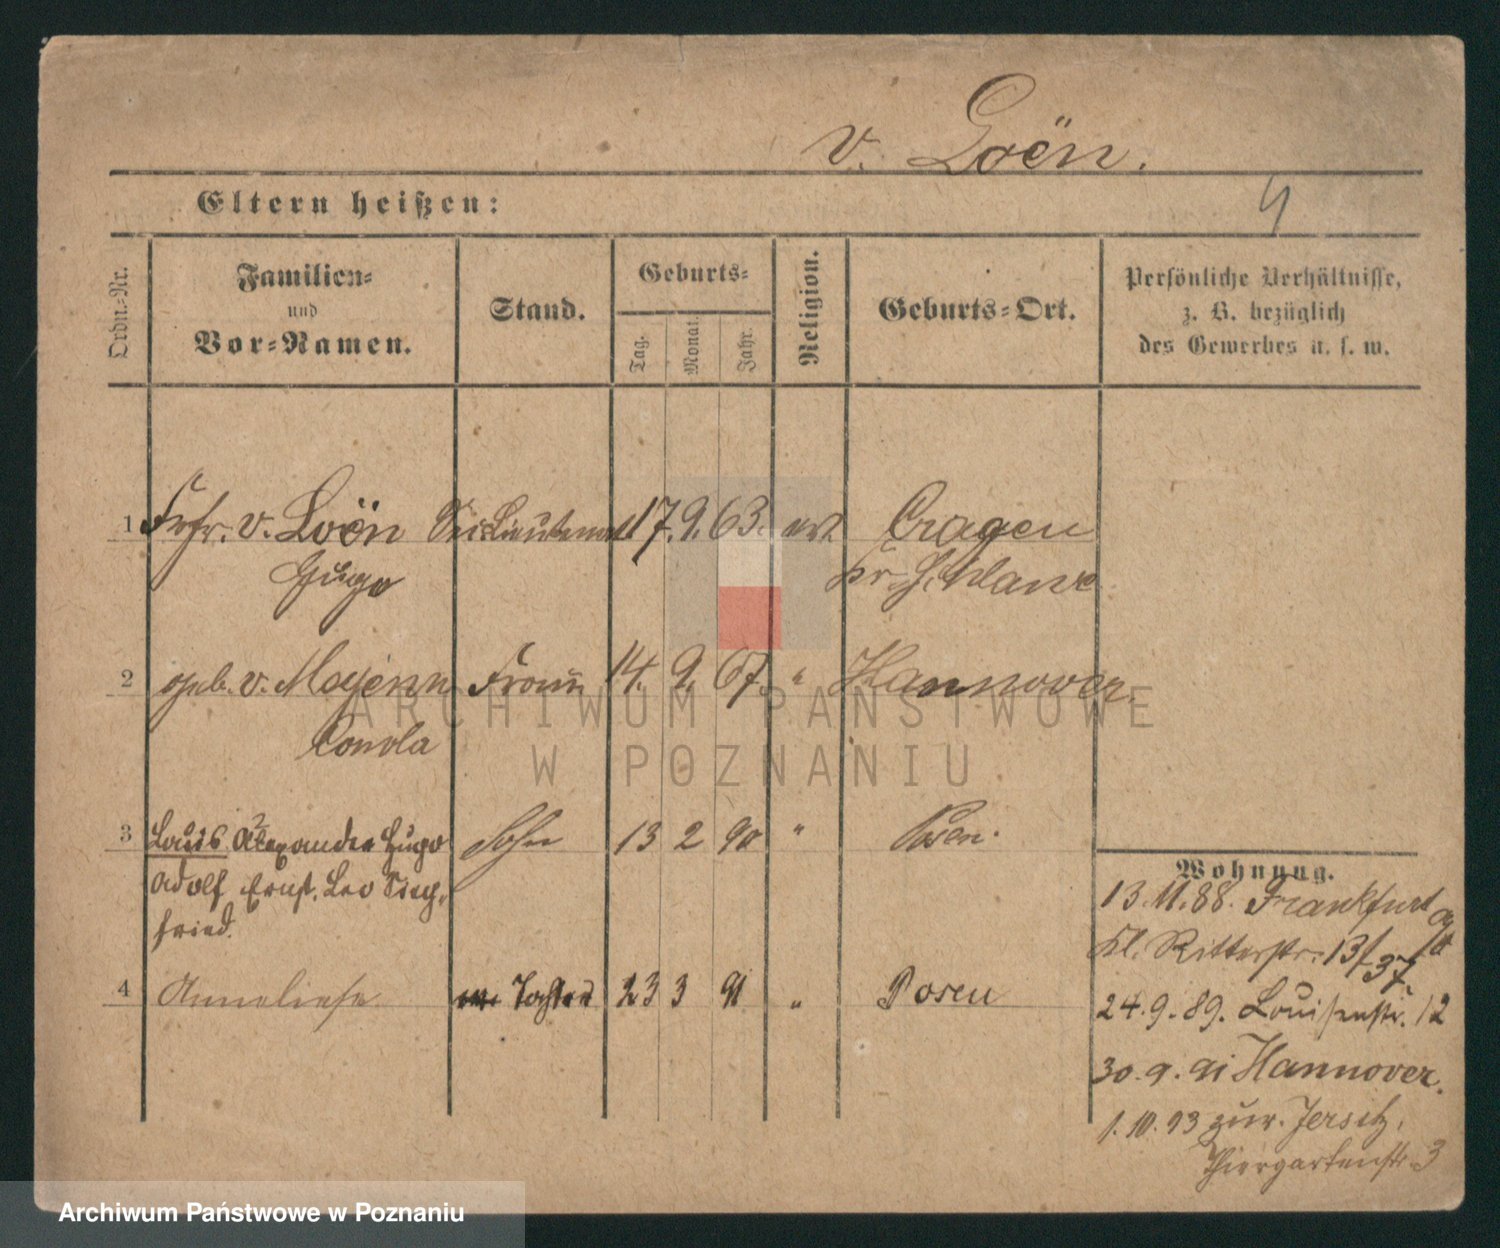 v. Loën.
Eltern heißen:
4
Ordn.-Nr.
Familien-
und
Vor-Namen.
Stand.
Geburts-
Tag.
Monat.
Jahr.
Religion.
Geburts-Ort.
Persönliche Verhältnisse,
z. B. bezüglich
des Gewerbes u. s. w.
1 Frhr. v. Loën Sec. Lieutenant 17. 9. 63. ev. Cragen
Hugo
2 geb. v. Frau 14. 9. 67. " Hannover.
3 Louis Alexander Hugo Sohn 13 2 90 " Posen.
Adolf Ernst. Leo Sieg-
fried.
4 Anneliese Tochter 23 3 91 " Posen
Wohnung.
13. 11. 88. Frankfurt a/O
Kl. Ritterstr. 13/37
24. 9. 89. Louisenstr. 12
30. 9. 91 Hannover.
1. 10. 93 zur. Jersitz,
Thiergartenstr. 3
ARCHIWUM PAŃSTWOWE
W POZNANIU
Archiwum Państwowe w Poznaniu